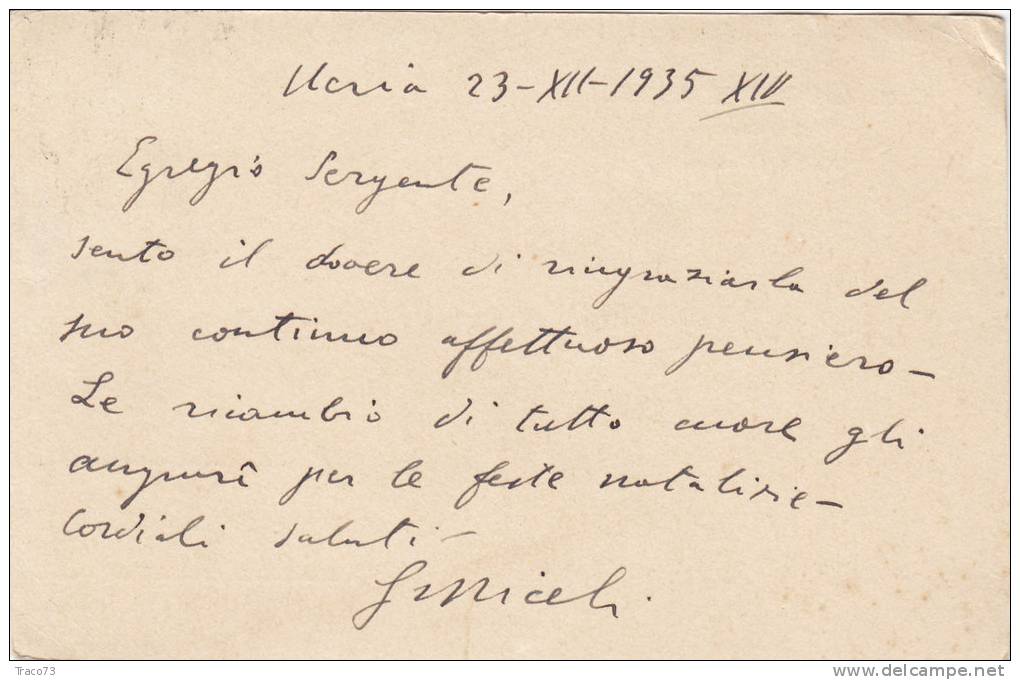 Ucria 23-XII-1935 XIV
Egregio Sergente,
sento il dovere di ringraziarla del
suo continuo affettuoso pensiero-
Le ricambio di tutto cuore gli
augurî per le feste natalizie-
Cordiali saluti-
Miceli
Traco73
delcampe.net